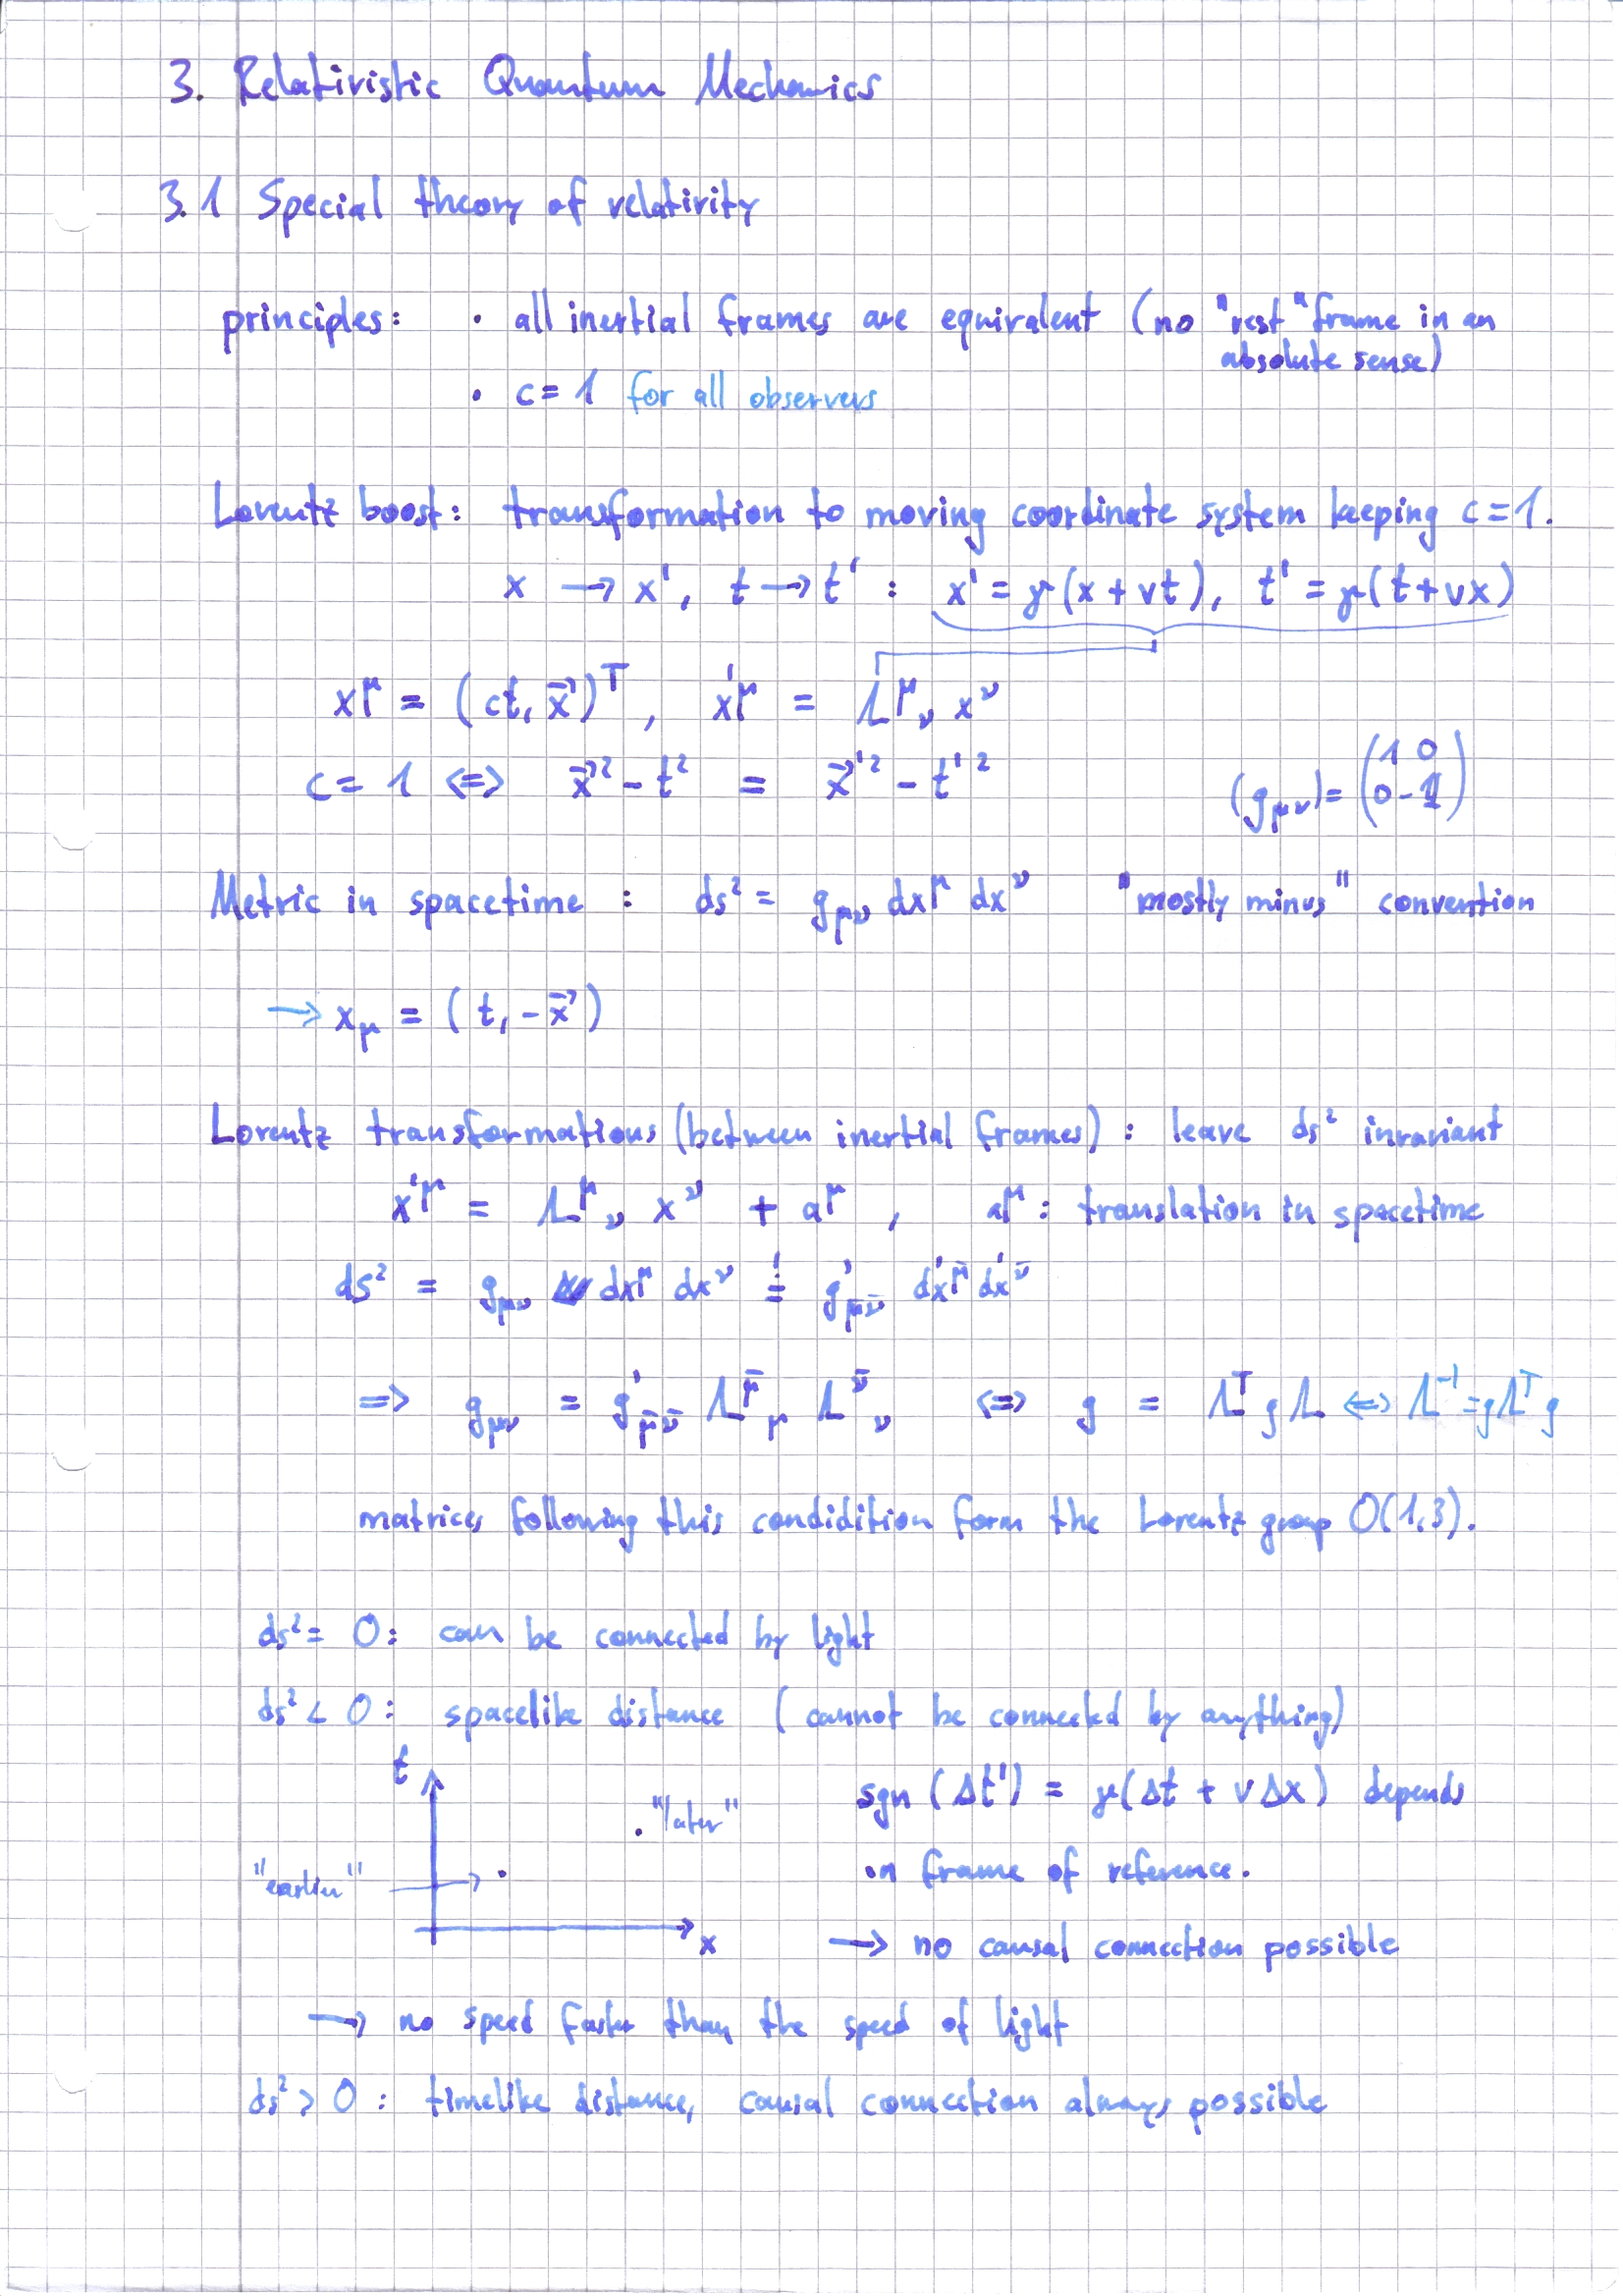 3. Relativistic Quantum Mechanics
3.1 Special theory of relativity
principles: · all inertial frames are equivalent (no "rest" frame in an
absolute sense)
· c = 1 for all observers
Lorentz boost: transformation to moving coordinate system keeping c = 1.
x → x', t → t' : x' = γ(x + vt), t' = γ(t + vx)
x^μ = (ct, x⃗)^T, x'^μ = Λ^μ_ν x^ν
c = 1 ⇔ x⃗² - t² = x⃗'² - t'²
(g_μν) = (1 0
0 -𝟙)
Metric in spacetime : ds² = g_μν dx^μ dx^ν "mostly minus" convention
→ x_μ = (t, -x⃗)
Lorentz transformations (between inertial frames) : leave ds² invariant
x'^μ = Λ^μ_ν x^ν + a^μ , a^μ : translation in spacetime
ds² = g_μν dx^μ dx^ν =! g'_μ̄ν̄ dx'^μ̄ dx'^ν̄
⇒ g_μν = g'_μ̄ν̄ Λ^μ̄_μ Λ^ν̄_ν ⇔ g = Λ^T g Λ ⇔ Λ^-1 = g Λ^T g
matrices following this condidition form the Lorentz group O(1,3).
ds² = 0 : can be connected by light
ds² < 0 : spacelike distance (cannot be connected by anything)
t
"later"
"earlier"
x
sgn (Δt') = γ(Δt + vΔx) depends
on frame of reference.
→ no causal connection possible
→ no speed faster than the speed of light
ds² > 0 : timelike distance, causal connection always possible